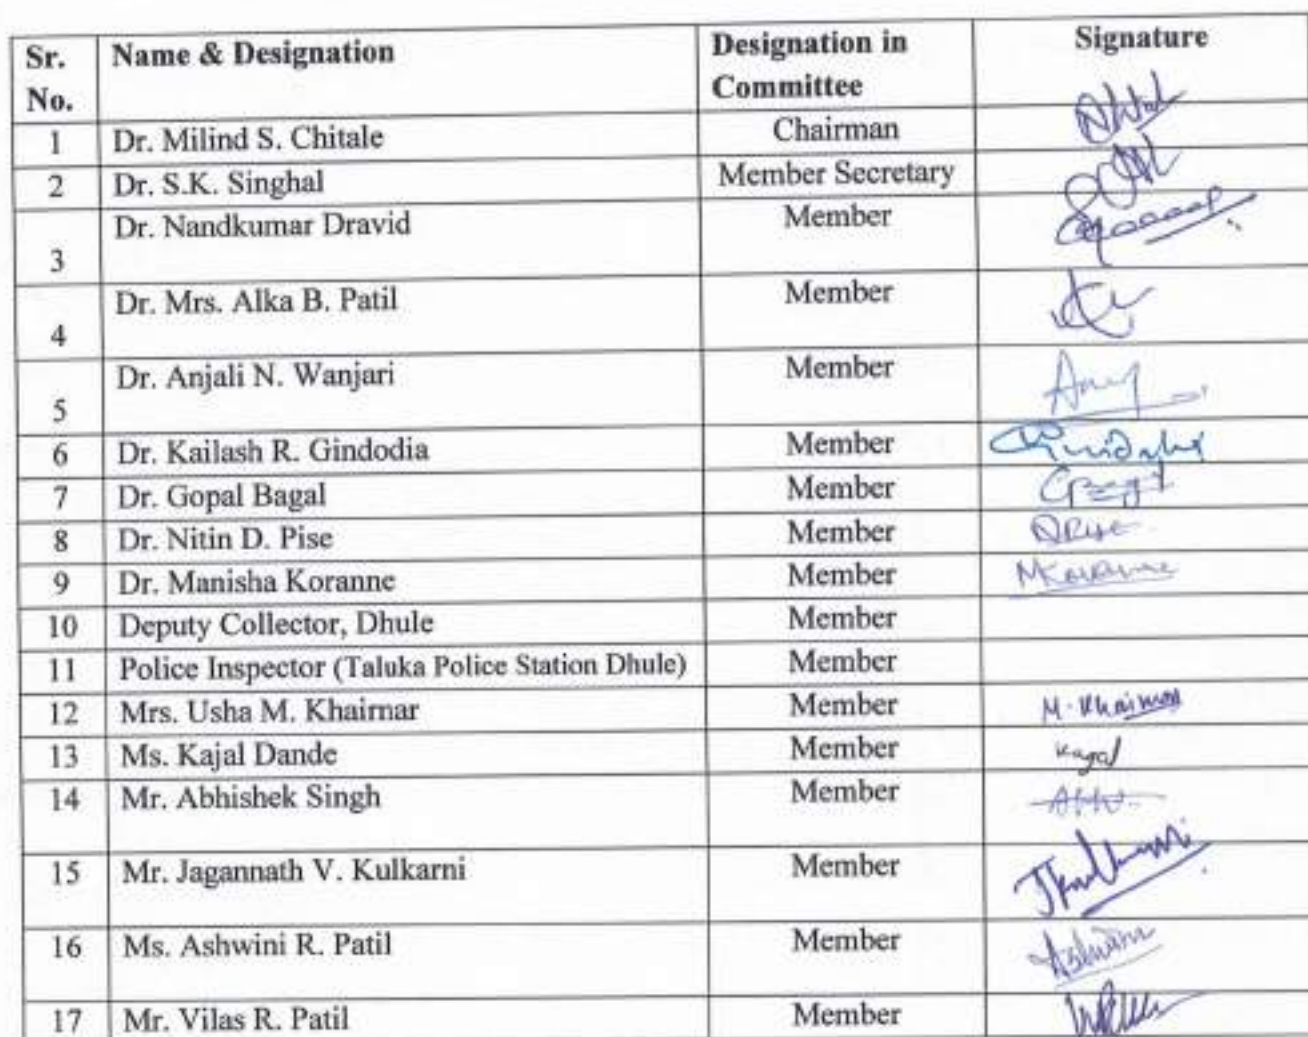 Sr. No. Name & Designation Designation in Committee Signature
1 Dr. Milind S. Chitale Chairman
2 Dr. S.K. Singhal Member Secretary
3 Dr. Nandkumar Dravid Member
4 Dr. Mrs. Alka B. Patil Member
5 Dr. Anjali N. Wanjari Member
6 Dr. Kailash R. Gindodia Member
7 Dr. Gopal Bagal Member
8 Dr. Nitin D. Pise Member
9 Dr. Manisha Koranne Member MKoranne
10 Deputy Collector, Dhule Member
11 Police Inspector (Taluka Police Station Dhule) Member
12 Mrs. Usha M. Khairnar Member M. Khairnar
13 Ms. Kajal Dande Member Kajal
14 Mr. Abhishek Singh Member
15 Mr. Jagannath V. Kulkarni Member
16 Ms. Ashwini R. Patil Member Ashwini
17 Mr. Vilas R. Patil Member